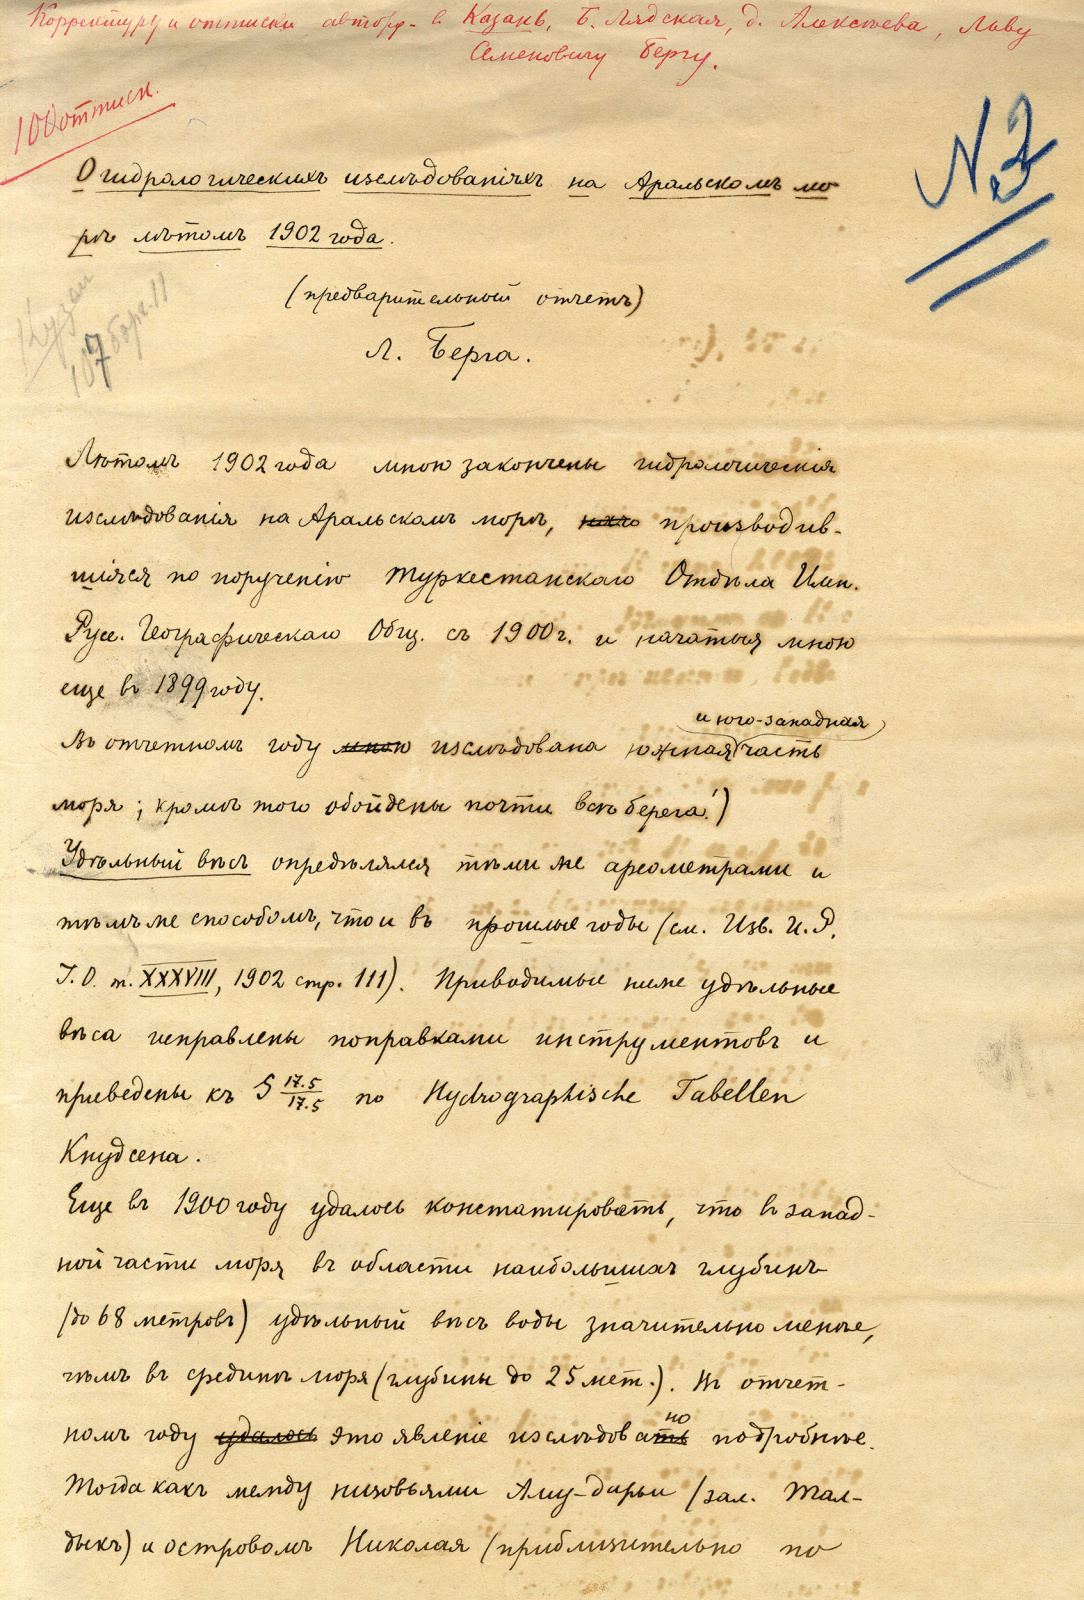 Корректуру и оттиски автору - в Казань, Б. Лядская, д. Алексеева, Льву
Семеновичу Бергу.
100 оттиск.
№ 2
О гидрологическихъ изслѣдованіяхъ на Аральскомъ мо
рѣ лѣтомъ 1902 года.
(предварительный отчетъ)
Л. Берга.
Лѣтомъ 1902 года мною закончены гидрологическія
изслѣдованія на Аральскомъ морѣ, производив-
шіяся по порученію Туркестанскаго Отдѣла Имп.
Русс. Географическаго Общ. съ 1900 г. и начатыя мною
еще въ 1899 году.
и юго-западная
Въ отчетномъ году мною изслѣдована южная часть
моря; кромѣ того обойдены почти всѣ берега.¹)
Удѣльный вѣсъ опредѣлялся тѣми же ареометрами и
тѣмъ же способомъ, что и въ прошлые годы (см. Изв. И. Р.
Г. О. т. XXXVIII, 1902 стр. 111). Приводимые ниже удѣльные
вѣса исправлены поправками инструментовъ и
приведены къ S 17.5/17.5 по Hydrographische Tabellen
Кнудсена.
Еще въ 1900 году удалось констатировать, что в запад-
ной части моря въ области наибольшихъ глубинъ
(до 68 метровъ) удѣльный вѣсъ воды значительно менѣе,
чѣмъ въ срединѣ моря (глубины до 25 мет.). Въ отчет-
но
номъ году удалось это явленіе изслѣдовать подробнѣе.
Тогда какъ между низовьями Аму-дарьи (зал. Тал-
дыкъ) и островомъ Николая (приблизительно по